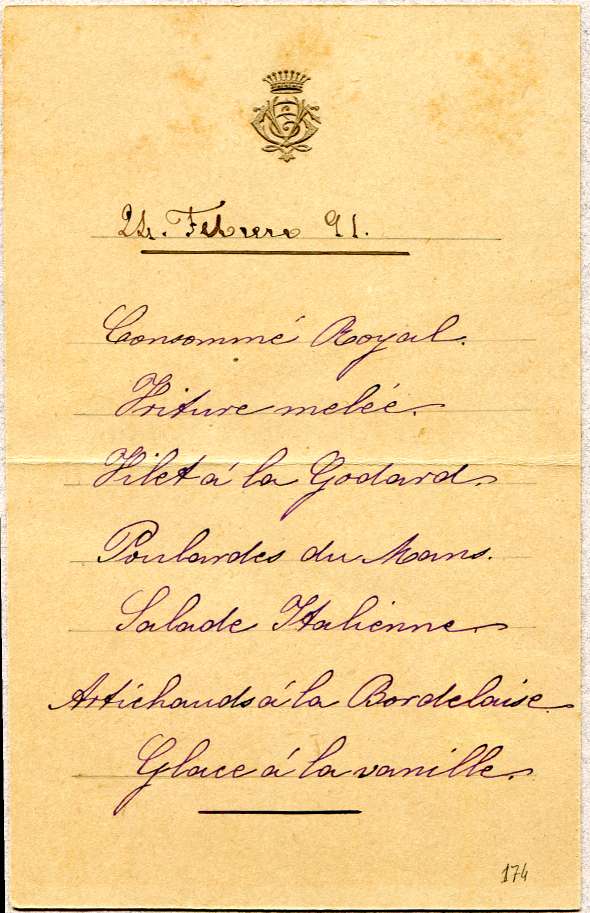 24. Febrero 91.
Consommé Royal.
Friture melée.
Filet á la Godard.
Poulardes du Mans.
Salade Italienne.
Artichauds á la Bordelaise.
Glace á la vanille.
174